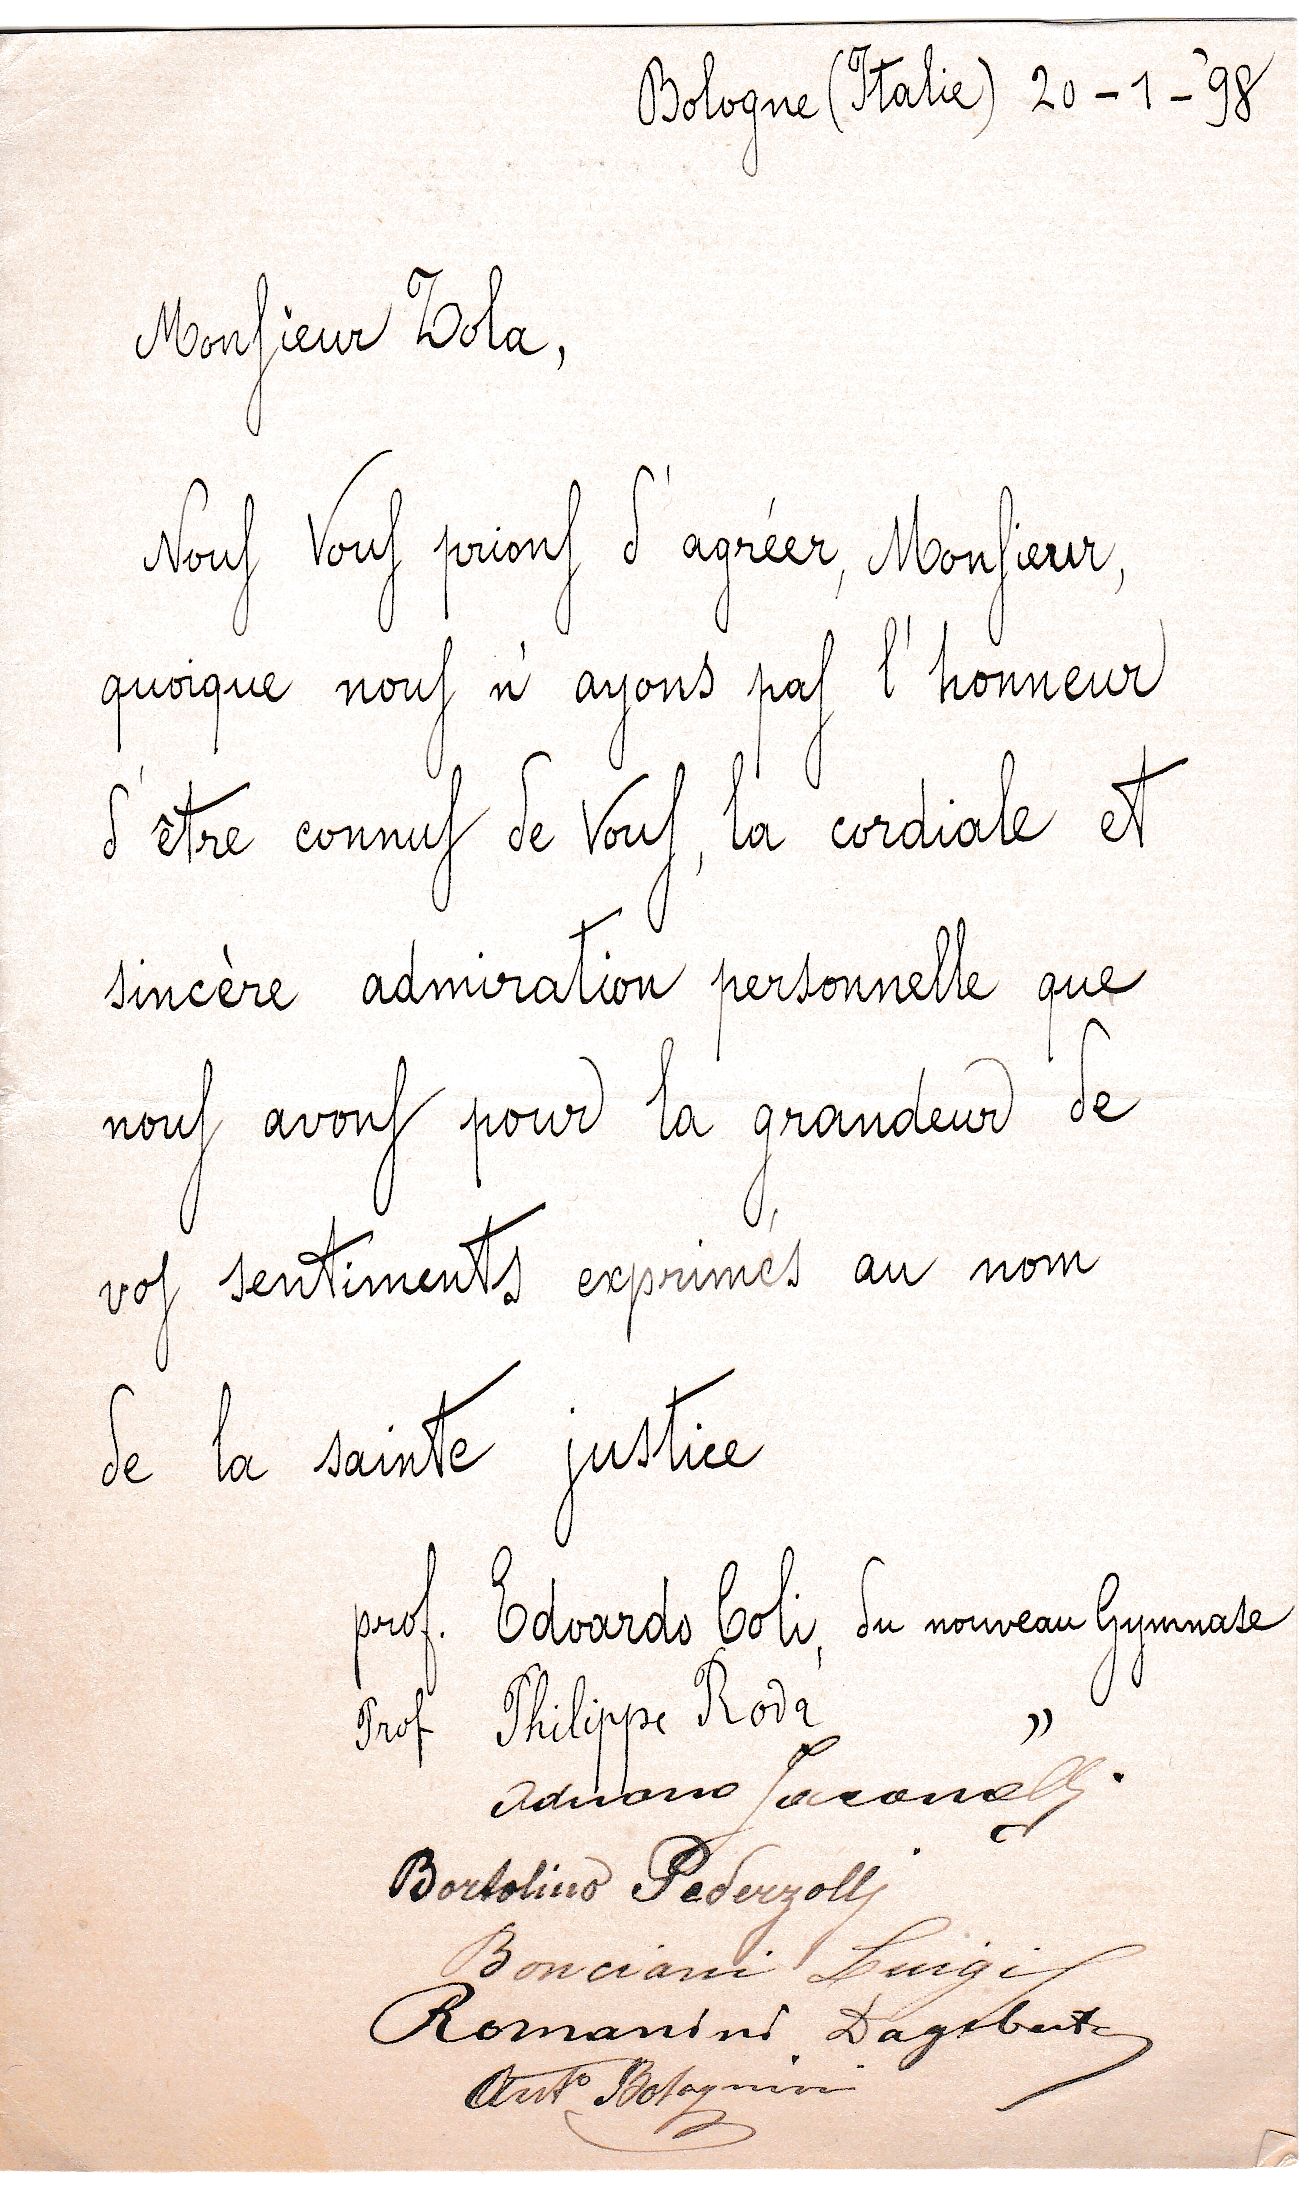 Bologne (Italie) 20-1-'98
Monsieur Zola,
Nous Vous prions d'agréer, Monsieur,
quoique nous n'ayons pas l'honneur
d'être connus de Vous, la cordiale et
sincère admiration personnelle que
nous avons pour la grandeur de
vos sentiments exprimés au nom
de la sainte justice
prof. Edoardo Coli, du nouveau Gymnase
Prof Philippe Roda "
Adriano
Bortolino Pederzolli
Bonciani Luigi
Romanini Dagoberto
Anto Bolognini